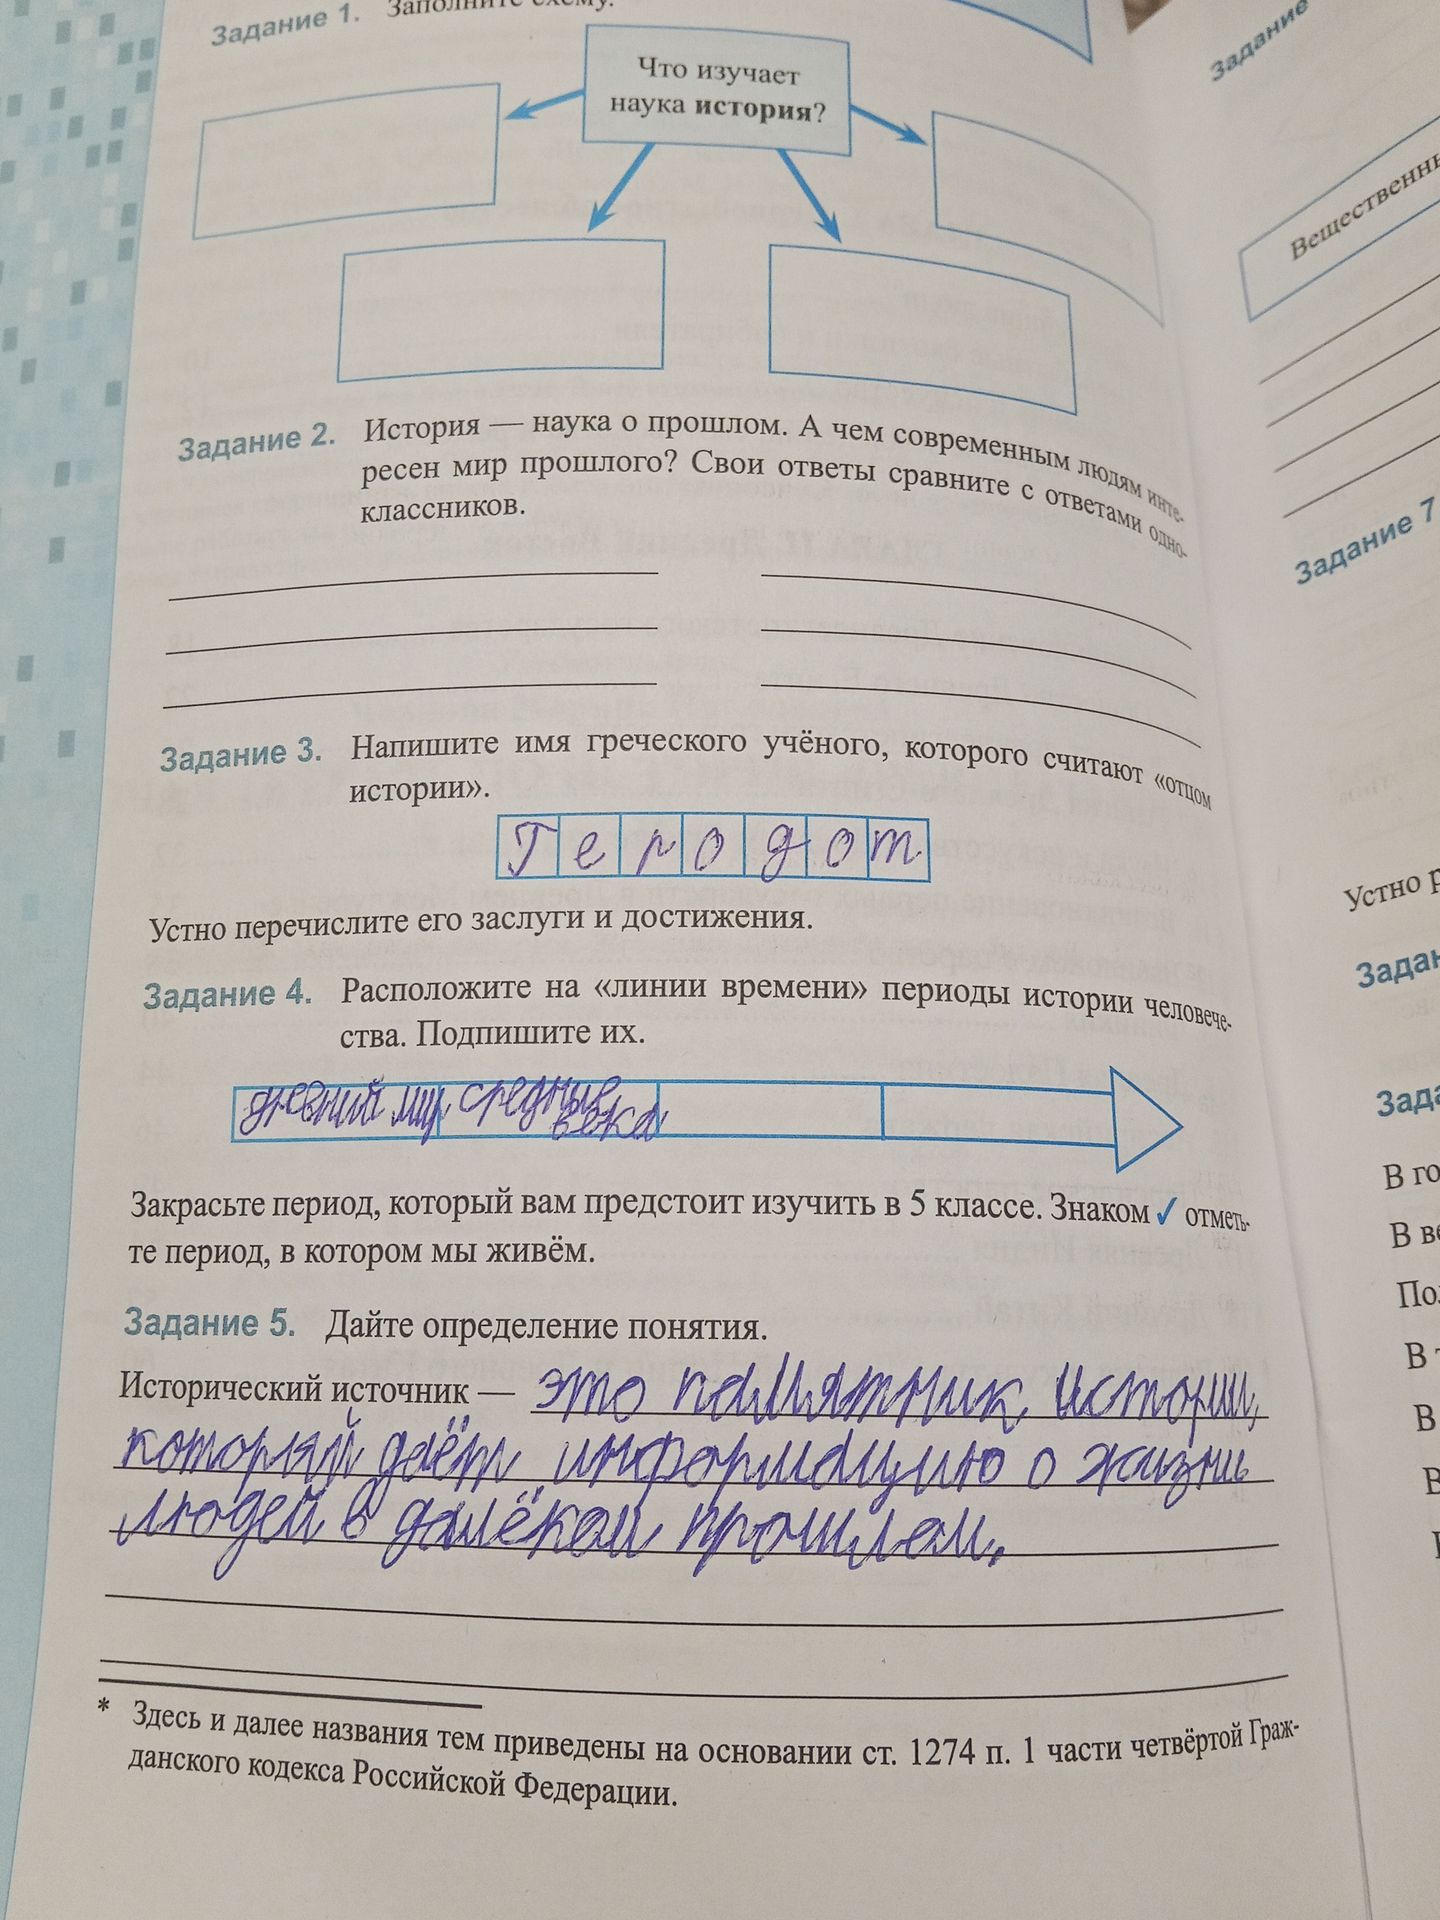 Задание 1. Заполните схему.
Что изучает
наука история?
Задание 2. История — наука о прошлом. А чем современным людям инте-
ресен мир прошлого? Свои ответы сравните с ответами одно-
классников.
Задание 3. Напишите имя греческого учёного, которого считают «отцом
истории».
Геродот
Устно перечислите его заслуги и достижения.
Задание 4. Расположите на «линии времени» периоды истории человече-
ства. Подпишите их.
древний мир средние
века
Закрасьте период, который вам предстоит изучить в 5 классе. Знаком ✓ отметь-
те период, в котором мы живём.
Задание 5. Дайте определение понятия.
Исторический источник — это памятник истории,
который даёт информацию о жизни
людей в далёком прошлом.
* Здесь и далее названия тем приведены на основании ст. 1274 п. 1 части четвёртой Граж-
данского кодекса Российской Федерации.
Задание
Задание 7
Устно
В
В
В
В